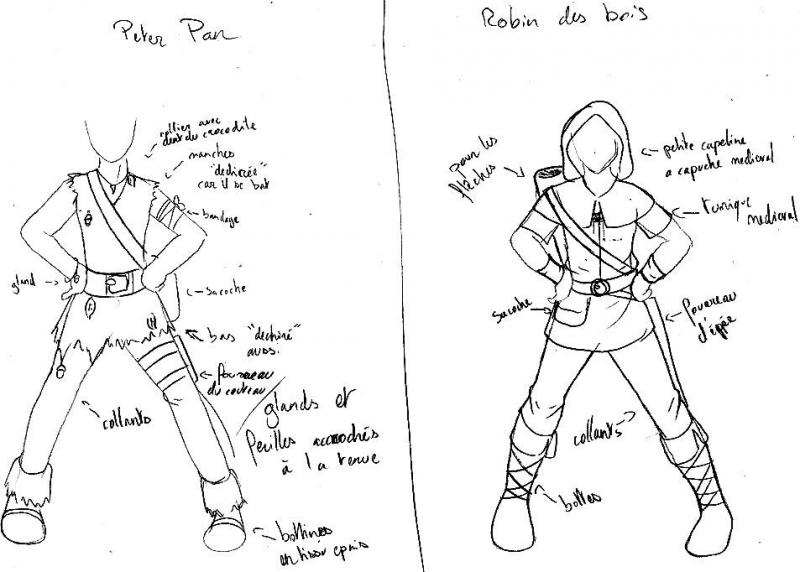 Peter Pan
collier avec
dent du crocodile
manches
"dechirée"
car il se bat
bandage
gland
sacoche
bas "dechiré"
aussi.
fourreau
du couteau
glands et
feuilles accrochés
à la tenue
collants
bottines
en tissu epais
Robin des bois
pour les
flèches
petite capeline
a capuche medieval
tunique
medieval
sacoche
fourreau
d'épée
collants
bottes